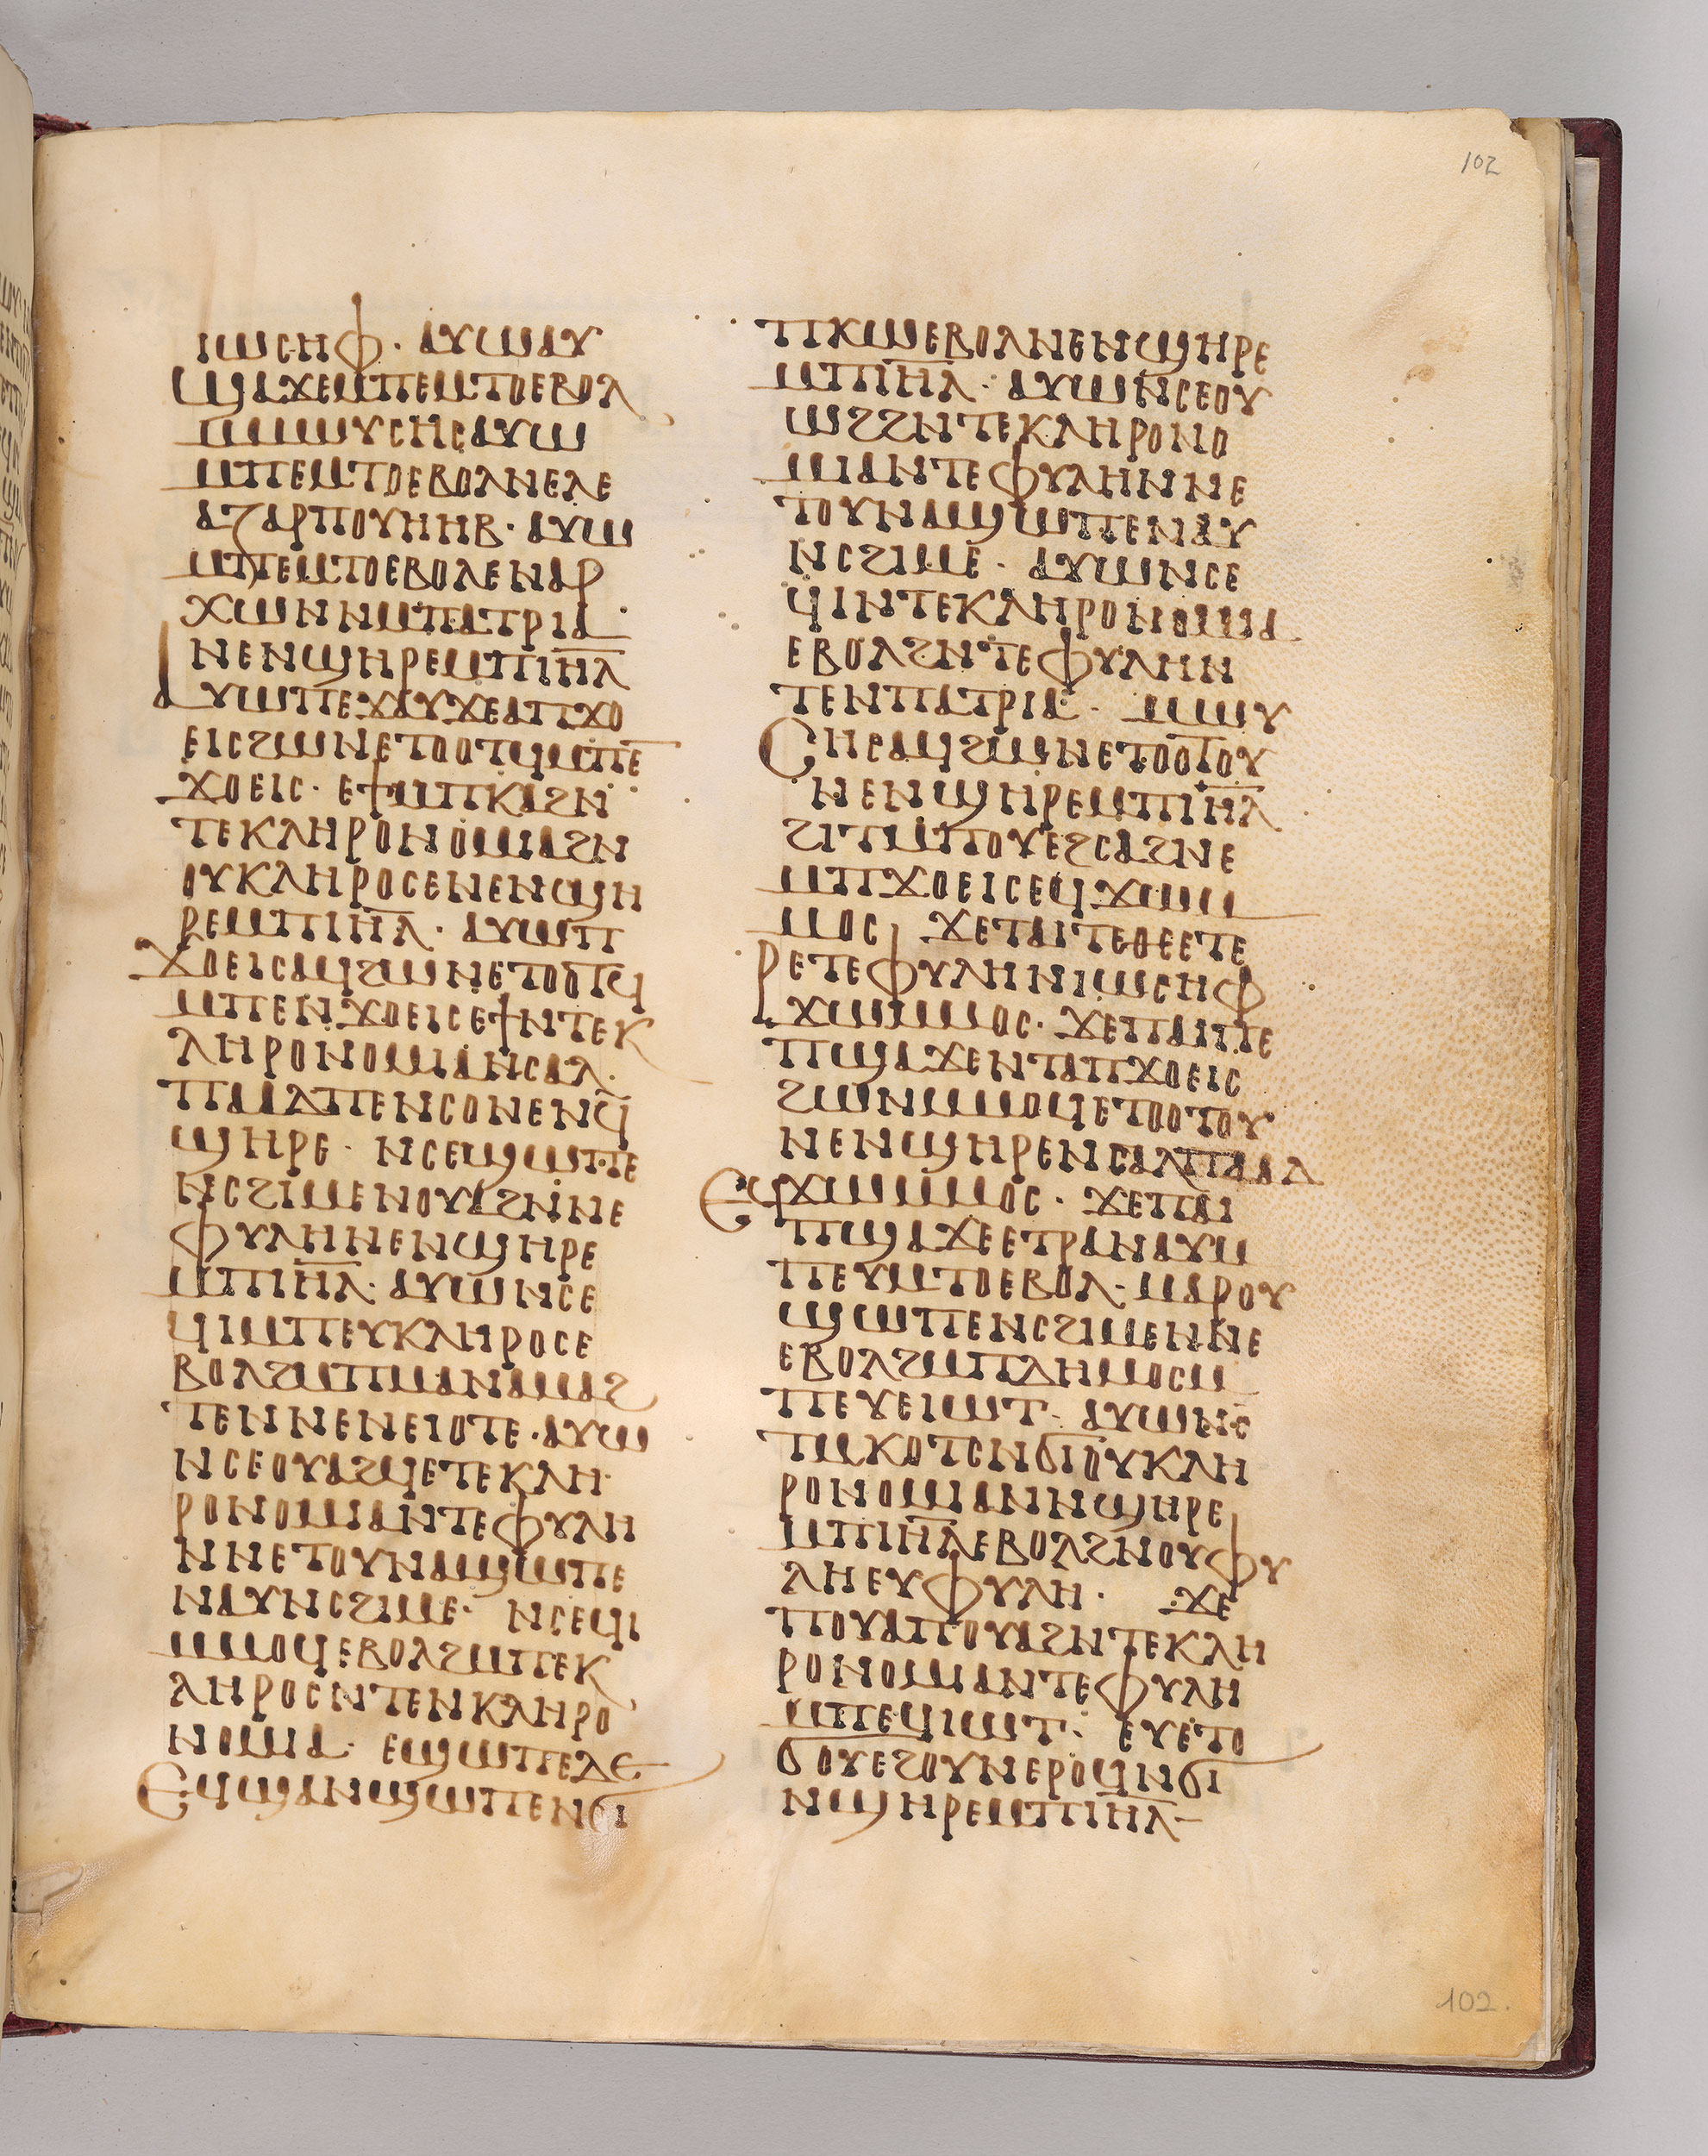 102
ⲓⲱⲥⲏⲫ· ⲁⲩⲱⲁⲩ
ϣⲁϫⲉⲙⲡⲉⲙⲧⲟⲉⲃⲟⲗ
ⲙⲙⲱⲩⲥⲏⲥⲁⲩⲱ
ⲙⲡⲉⲙⲧⲟⲉⲃⲟⲗⲛⲉⲗⲉ
ⲁⲍⲁⲣⲡⲟⲩⲏⲏⲃ· ⲁⲩⲱ
ⲙⲡⲉⲙⲧⲟⲉⲃⲟⲗⲉⲛⲁⲣ
ⲭⲱⲛⲛⲙⲡⲁⲧⲣⲓⲁ
ⲛⲉⲛϣⲏⲣⲉⲙⲡⲓⲏ̅ⲗ̅
ⲁⲩⲱⲡⲉϫⲁⲩϫⲉⲁⲡϫⲟ
ⲉⲓⲥϩⲱⲛⲉⲧⲟⲟⲧϥⲙⲡⲉ
ϫⲟⲉⲓⲥ· ⲉϯⲙⲡⲕⲁϩⲛ
ⲧⲉⲕⲗⲏⲣⲟⲛⲟⲙⲓⲁϩⲛ
ⲟⲩⲕⲗⲏⲣⲟⲥⲉⲛⲉⲛϣⲏ
ⲣⲉⲙⲡⲓⲏ̅ⲗ̅· ⲁⲩⲱⲡ
ϫⲟⲉⲓⲥⲁϥϩⲱⲛⲉⲧⲟⲟⲧϥ
ⲙⲡⲉⲛϫⲟⲉⲓⲥⲉϯⲛⲧⲉⲕ
ⲗⲏⲣⲟⲛⲟⲙⲓⲁⲛⲥⲁⲗ
ⲡⲁⲁⲇⲡⲉⲛⲥⲟⲛⲉⲛϥ
ϣⲏⲣⲉ· ⲛⲥⲉϣⲱⲡⲉ
ⲛⲥϩⲓⲙⲉⲛⲟⲩⲁϩⲛⲛⲉ
ⲫⲩⲗⲏⲛⲉⲛϣⲏⲣⲉ
ⲙⲡⲓⲏ̅ⲗ̅· ⲁⲩⲱⲛⲥⲉ
ϥⲓⲙⲡⲉⲩⲕⲗⲏⲣⲟⲥⲉ
ⲃⲟⲗϩⲙⲡⲙⲁⲛⲁⲙⲁϩ
ⲧⲉⲛⲛⲉⲛⲉⲓⲟⲧⲉ· ⲁⲩⲱ
ⲛⲥⲉⲟⲩⲁϩϥⲉⲧⲉⲕⲗⲏ
ⲣⲟⲛⲟⲙⲓⲁⲛⲧⲉⲫⲩⲗⲏ
ⲛⲛⲉⲧⲟⲩⲛⲁϣⲱⲡⲉ
ⲛⲁⲩⲛⲥϩⲓⲙⲉ· ⲛⲥⲉϥⲓ
ⲙⲙⲟϥⲉⲃⲟⲗϩⲙⲡⲉⲕ
ⲗⲏⲣⲟⲥⲛⲧⲉⲛⲕⲗⲏⲣⲟ
ⲛⲟⲙⲓⲁ· ⲉϣⲱⲡⲉⲇⲉ
ⲉϥϣⲁⲛϣⲱⲡⲉⲛϭⲓ
ⲡⲕⲱⲉⲃⲟⲗⲛⲉⲛϣⲏⲣⲉ
ⲙⲡⲓⲏ̅ⲗ̅· ⲁⲩⲱⲛⲥⲉⲟⲩ
ⲱϩϩⲛⲧⲉⲕⲗⲏⲣⲟⲛⲟ
ⲙⲓⲁⲛⲧⲉⲫⲩⲗⲏⲛⲛⲉ
ⲧⲟⲩⲛⲁϣⲱⲡⲉⲛⲁⲩ
ⲛⲥϩⲓⲙⲉ· ⲁⲩⲱⲛⲥⲉ
ϥⲓⲛⲧⲉⲕⲗⲏⲣⲟⲛⲟⲙⲓⲁ
ⲉⲃⲟⲗϩⲛⲧⲉⲫⲩⲗⲏⲛ
ⲧⲉⲛⲡⲁⲧⲣⲓⲁ· ⲙⲱⲩ
ⲥⲏⲥⲁϥϩⲱⲛⲉⲧⲟⲟⲧⲟⲩ
ⲛⲉⲛϣⲏⲣⲉⲙⲡⲓⲏ̅ⲗ̅
ϩⲓⲧⲙⲡⲟⲩⲉϩⲥⲁϩⲛⲉ
ⲙⲡϫⲟⲉⲓⲥⲉϥϫⲱⲙ
ⲙⲟⲥ ϫⲉⲧⲁⲓⲧⲉⲑⲉⲉⲧⲉ
ⲣⲉⲧⲉⲫⲩⲗⲏⲛⲓⲱⲥⲏⲫ
ϫⲱⲙⲙⲟⲥ· ϫⲉⲡⲁⲓⲡⲉ
ⲡϣⲁϫⲉⲛⲧⲁⲡϫⲟⲉⲓⲥ
ϩⲱⲛⲙⲙⲟϥⲉⲧⲟⲟⲧⲟⲩ
ⲛⲉⲛϣⲏⲣⲉⲛⲥⲁⲗⲡⲁⲁⲇ
ⲉϥϫⲱⲙⲙⲟⲥ· ϫⲉⲡⲁⲓ
ⲡϣⲁϫⲉⲉⲧⲣⲁⲛⲁⲩⲙ
ⲡⲉⲩⲙⲧⲟⲉⲃⲟⲗ· ⲙⲁⲣⲟⲩ
ϣⲱⲡⲉⲛⲥϩⲓⲙⲉⲛⲛⲉ
ⲉⲃⲟⲗϩⲙⲡⲇⲏⲙⲟⲥⲙ
ⲡⲉⲩⲉⲓⲱⲧ· ⲁⲩⲱⲛⲥ
ⲧⲙⲕⲟⲧⲥⲛϭⲓⲟⲩⲕⲗⲏ
ⲣⲟⲛⲟⲙⲓⲁⲛⲛϣⲏⲣⲉ
ⲙⲡⲓⲏ̅ⲗ̅ⲉⲃⲟⲗϩⲛⲟⲩⲫⲩ
ⲗⲏⲉⲩⲫⲩⲗⲏ· ϫⲉ
ⲡⲟⲩⲁⲡⲟⲩⲁϩⲛⲧⲉⲕⲗⲏ
ⲣⲟⲛⲟⲙⲓⲁⲛⲧⲉⲫⲩⲗⲏ
ⲙⲡⲉϥⲓⲱⲧ· ⲉⲩⲉⲧⲟ
ϭⲟⲩⲉϩⲟⲩⲛⲉⲣⲟϥⲛϭⲓ
ⲛϣⲏⲣⲉⲙⲡⲓⲏ̅ⲗ̅-
102.